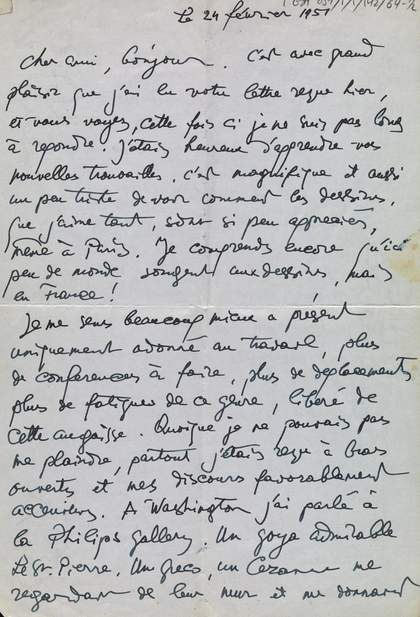 Le 24 février 1951
Cher ami, bonjour. C'est avec grand
plaisir que j'ai lu votre lettre reçue hier,
et vous voyez, cette fois ci je ne suis pas long
à repondre. J'étais heureux d'apprendre vos
nouvelles trouvailles, c'est magnifique et aussi
un peu triste de voir comment les dessins,
que j'aime tant, sont si peu appréciés,
même à Paris. Je comprends encore qu'ici
peu de monde songent aux dessins, mais
en France!
Je me sens beaucoup mieux à présent
uniquement adonné au travail, plus
de conferences à faire, plus de deplacements
plus de fatigues de ce genre, libéré de
cette angoisse. Quoique je ne pouvais pas
me plaindre, partout j'étais reçu à bras
ouverts et mes discours favorablement
accueuillis. A Washington j'ai parlé à
la Philips gallery. Un goya admirable
Le St. Pierre. Un greco, un Cézanne me
regardant de leur mur et me donnant